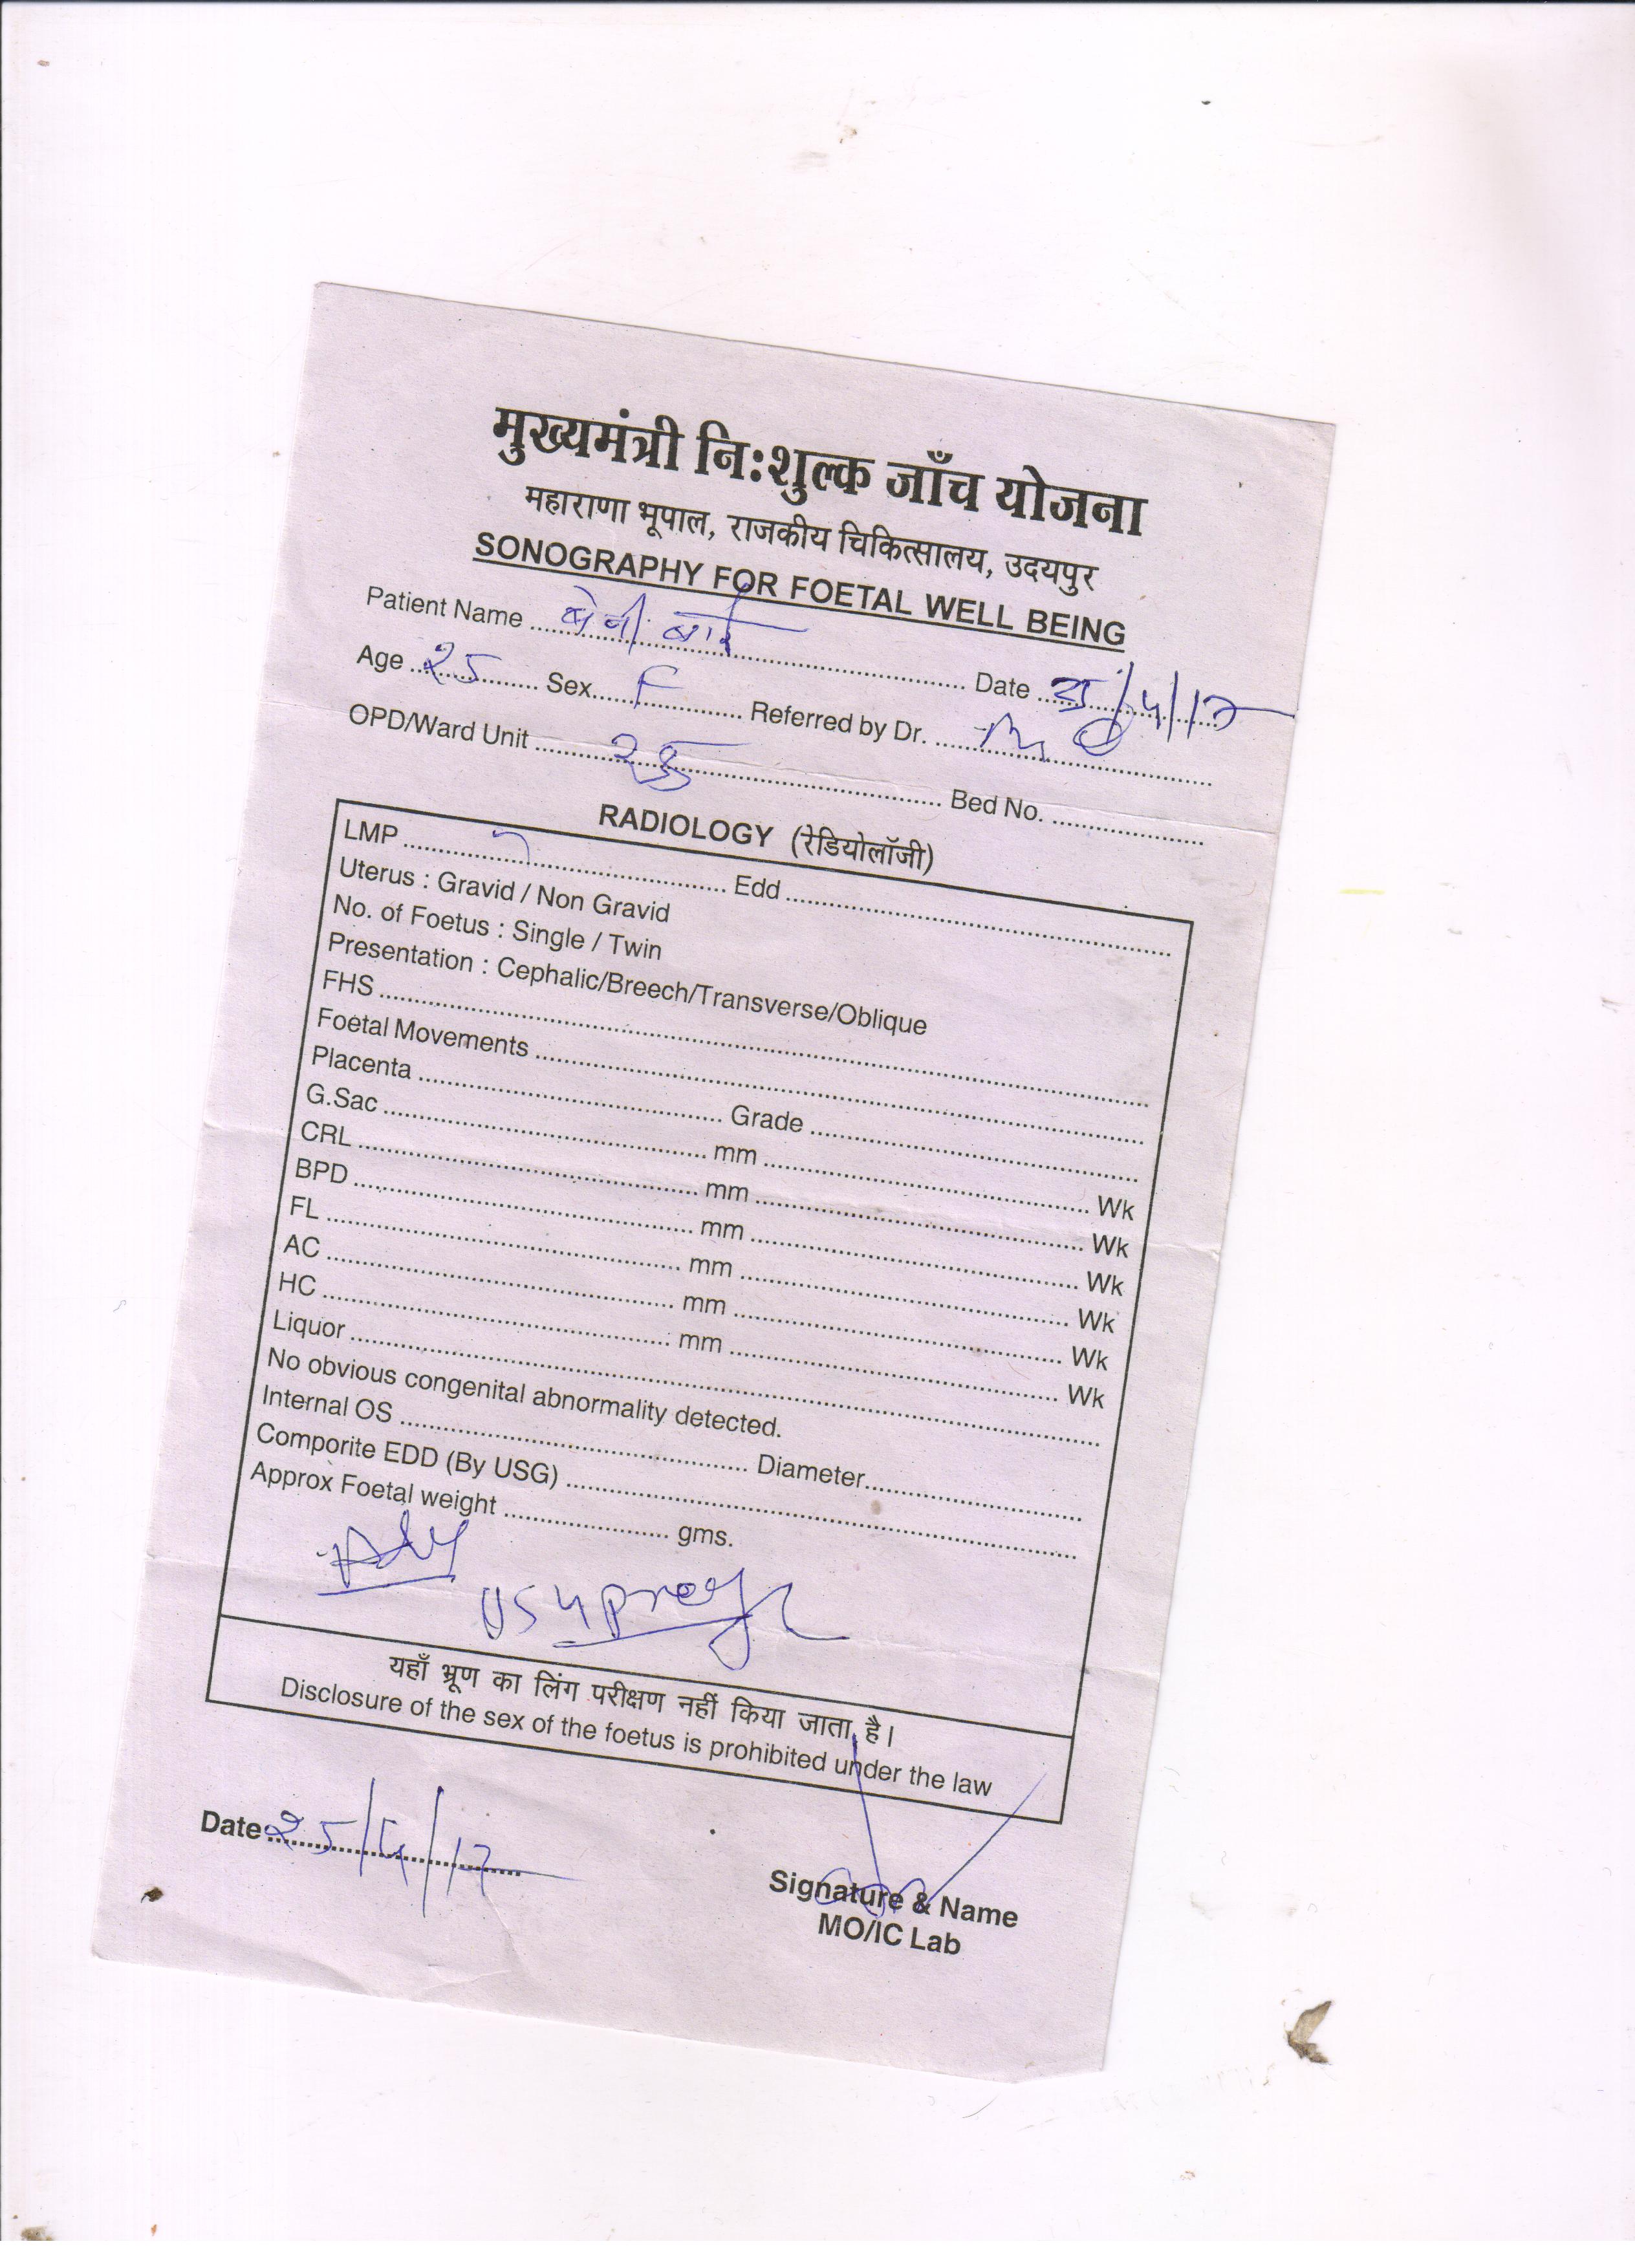 मुख्यमंत्री निःशुल्क जाँच योजना
महाराणा भूपाल, राजकीय चिकित्सालय, उदयपुर
SONOGRAPHY FOR FOETAL WELL BEING
Patient Name .......... बाई .......... Date 25/4/17
Age 25 Sex F Referred by Dr. ..........
OPD/Ward Unit .......... Bed No. ..........
RADIOLOGY (रेडियोलॉजी)
LMP .......... Edd ..........
Uterus : Gravid / Non Gravid
No. of Foetus : Single / Twin
Presentation : Cephalic/Breech/Transverse/Oblique
FHS ..........
Foetal Movements ..........
Placenta .......... Grade ..........
G.Sac .......... mm .......... Wk
CRL .......... mm .......... Wk
BPD .......... mm .......... Wk
FL .......... mm .......... Wk
AC .......... mm .......... Wk
HC .......... mm .......... Wk
Liquor ..........
No obvious congenital abnormality detected.
Internal OS .......... Diameter ..........
Comporite EDD (By USG) ..........
Approx Foetal weight .......... gms.
यहाँ भ्रूण का लिंग परीक्षण नहीं किया जाता है।
Disclosure of the sex of the foetus is prohibited under the law
Date 25/4/17
Signature & Name
MO/IC Lab